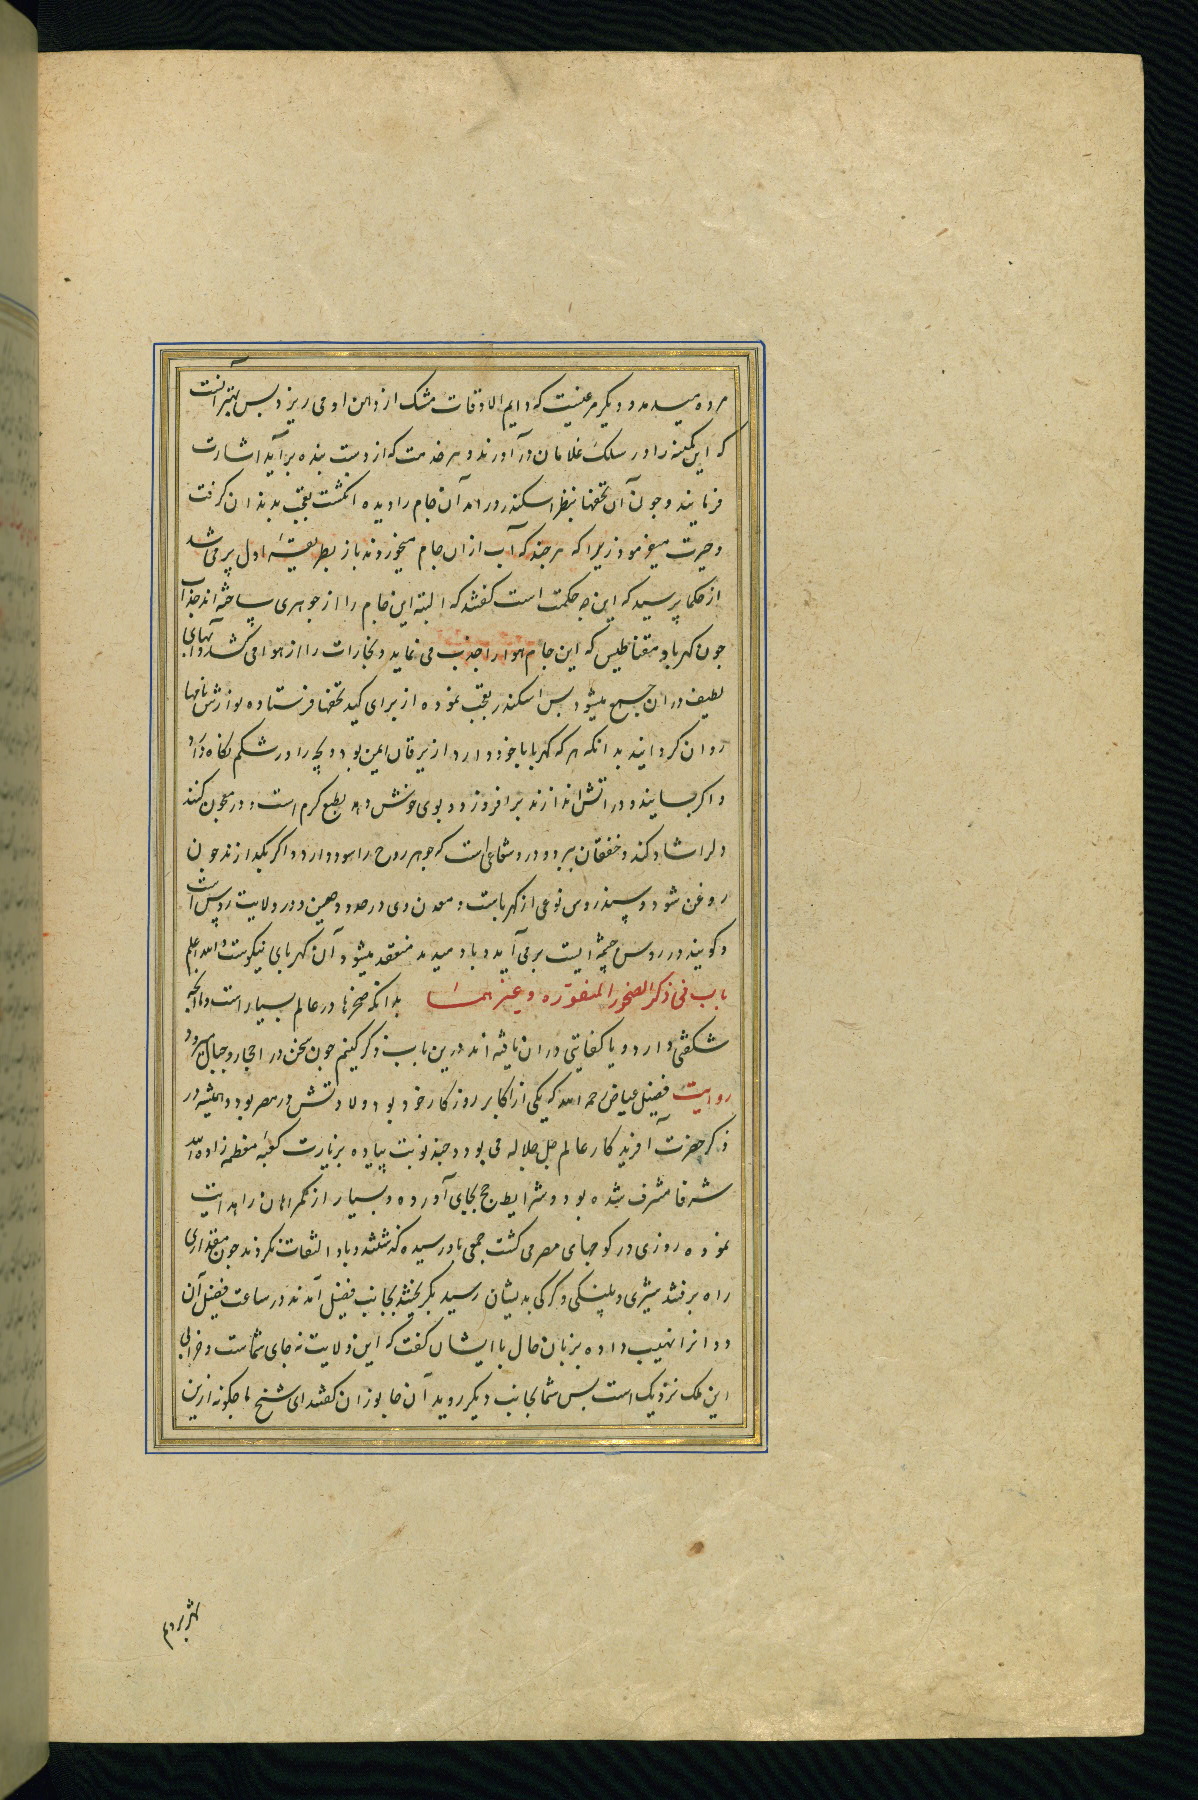 مرده میدمد و دیگر مرغیست که دایم الاوقات مشک از دهن او می ریزد بس بهتر آنست
که این کمینه را در سلک غلامان در آورند و هر خدمت که از دست بنده برآید اشارت
فرمایند و جون آن تحفها بنظر اسکندر در آمد آن جام را دیده انکشت تعجب بدندان کرفت
و حیرت میفرمود زیرا که هر جند که آب از ان جام میخوردند باز بطریقهٔ اول پر می شد
از حکما پرسید که این چه حکمت است کفتند که البته این جام را از جوهری ساخته اند جذاب
جون کهربا و مقناطیس که این جام هوا را جذب می نماید و بخارات را از هوا می کشد و آبهای
لطیف در ان جمع میشود بس اسکندر تعجب نموده از برای کید تحفها فرستاده نوازش نامها
روان کردانیند بدانکه هر که کهربا با خود دارد از یرقان ایمن بود و بچه را در شکم نکاه دارد
و اکر بسایند و در اتش اندازند بر افروزد و بوی خوش دهد بطبع کرم است و در معجون کنند
دلرا شاد کند و خفقان ببرد و در و شعاعی است که جوهر روح را سود دارد و اکر بکدازند جون
روغن شود و سندروس نوعی از کهرباست و معدن وی در حدود صین و در ولایت روس است
و کویند در روس چشمه ایست برمی آید و باد میدمد منعقد میشود آن کهربای نیکوست والله اعلم
باب فی ذکر الصخور المنقوره و غیرهما بدانکه صخرها در عالم بسیار است و ما انجه
شکفتی دارد و یا کفایتی در ان یافته اند درین باب ذکر کنیم جون سخن در احجار و جبال میرود
روایت فضیل عیاض رحمه الله که یکی از اکابر روزکار خود بود و ولادتش در مصر بود و همیشه در
ذکر حضرت آفریدکار عالم جل جلاله می بود و جند نوبت پیاده بزیارت کعبهٔ معظمه زاده الله
شرفا مشرف شده بود و شرایط حج بجای آورده و بسیار از کمراهان را هدایت
نموده روزی در کوجهای مصر می کشت جمعی با و رسیده کذشتند و باد التفات نکردند جون مقداری
راه برفتند شیری و پلنکی و کرکی بدیشان رسید بکریختند بجانب فضیل آمدند در ساعت فضیل آن
ددانرا نهیب داده بزبان حال با ایشان کفت که این ولایت نه جای شماست و خرابی
این ملک نزدیک است بس شما بجانب دیکر روید آن جانوران کفتند ای شیخ ما جکونه ازین